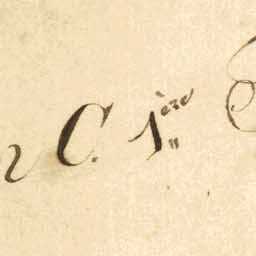 C. 1ère